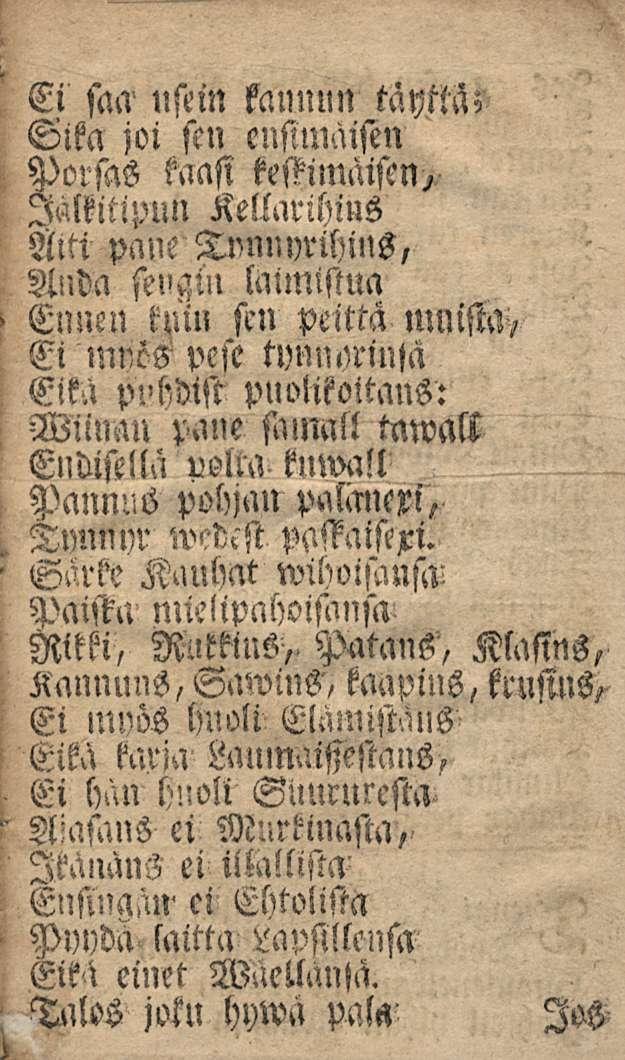 Ei saa usein kannun täyttä;
Sika joi sen ensimäisen
Porsas kaasi keskimäisen,
Jälkitipun Kellarihins
Äiti pane Tynnyrihins,
Anda sengin laimistua
Ennen kuin sen peittä muista,
Ei myös pese tynnorinsä
Eikä pyhdist puolikoitans:
Wiinan pane samall tawall
Endisellä polta kuwall
Pannus pohjan palanexi,
Tynnyr wedest paskaisexi.
Särke Kauhat wihoisansa
Paiska mielipahoisansa
Rikki, Rukkins, Patans, Klasins,
Kannuns, Sawins, kaapins, krusins,
Ei myös huoli Elämistäns
Eikä karja Laumaisestans,
Ei hän huoli Suuruxesta
Ajasans ei Murkinasta,
Ikänäns ei illallista
Ensingän ei Ehtolista
Pyydä laitta Lapsillensa
Eikä einet Wäellänsä.
Talos joku hywä pala Jos